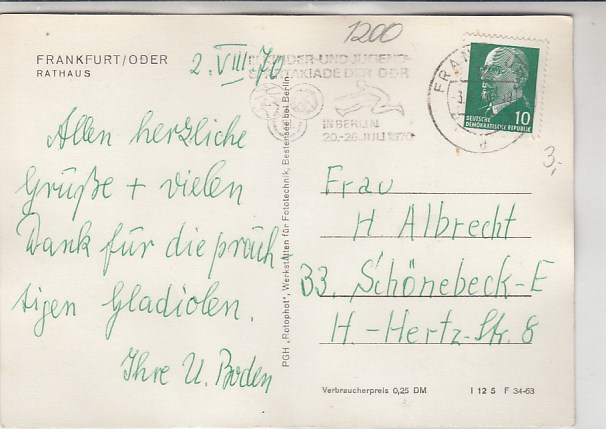 FRANKFURT/ODER
RATHAUS
2. VIII 70
1200
KINDER-UND JUGEND-
SPARTAKIADE DER DDR
IN BERLIN
20.-26. JULI 1970
10
DEUTSCHE
DEMOKRATISCHE REPUBLIK
3,-
Allen herzliche
Grüße + vielen
Dank für die präch
tigen Gladiolen.
Ihre U. Boden
PGH „Rotophot", Werkstätten für Fototechnik, Bestensee bei Berlin
Frau
H. Albrecht
33. Schönebeck-E
H.-Hertz-Str. 8
Verbraucherpreis 0,25 DM
I 12 5 F 34-63